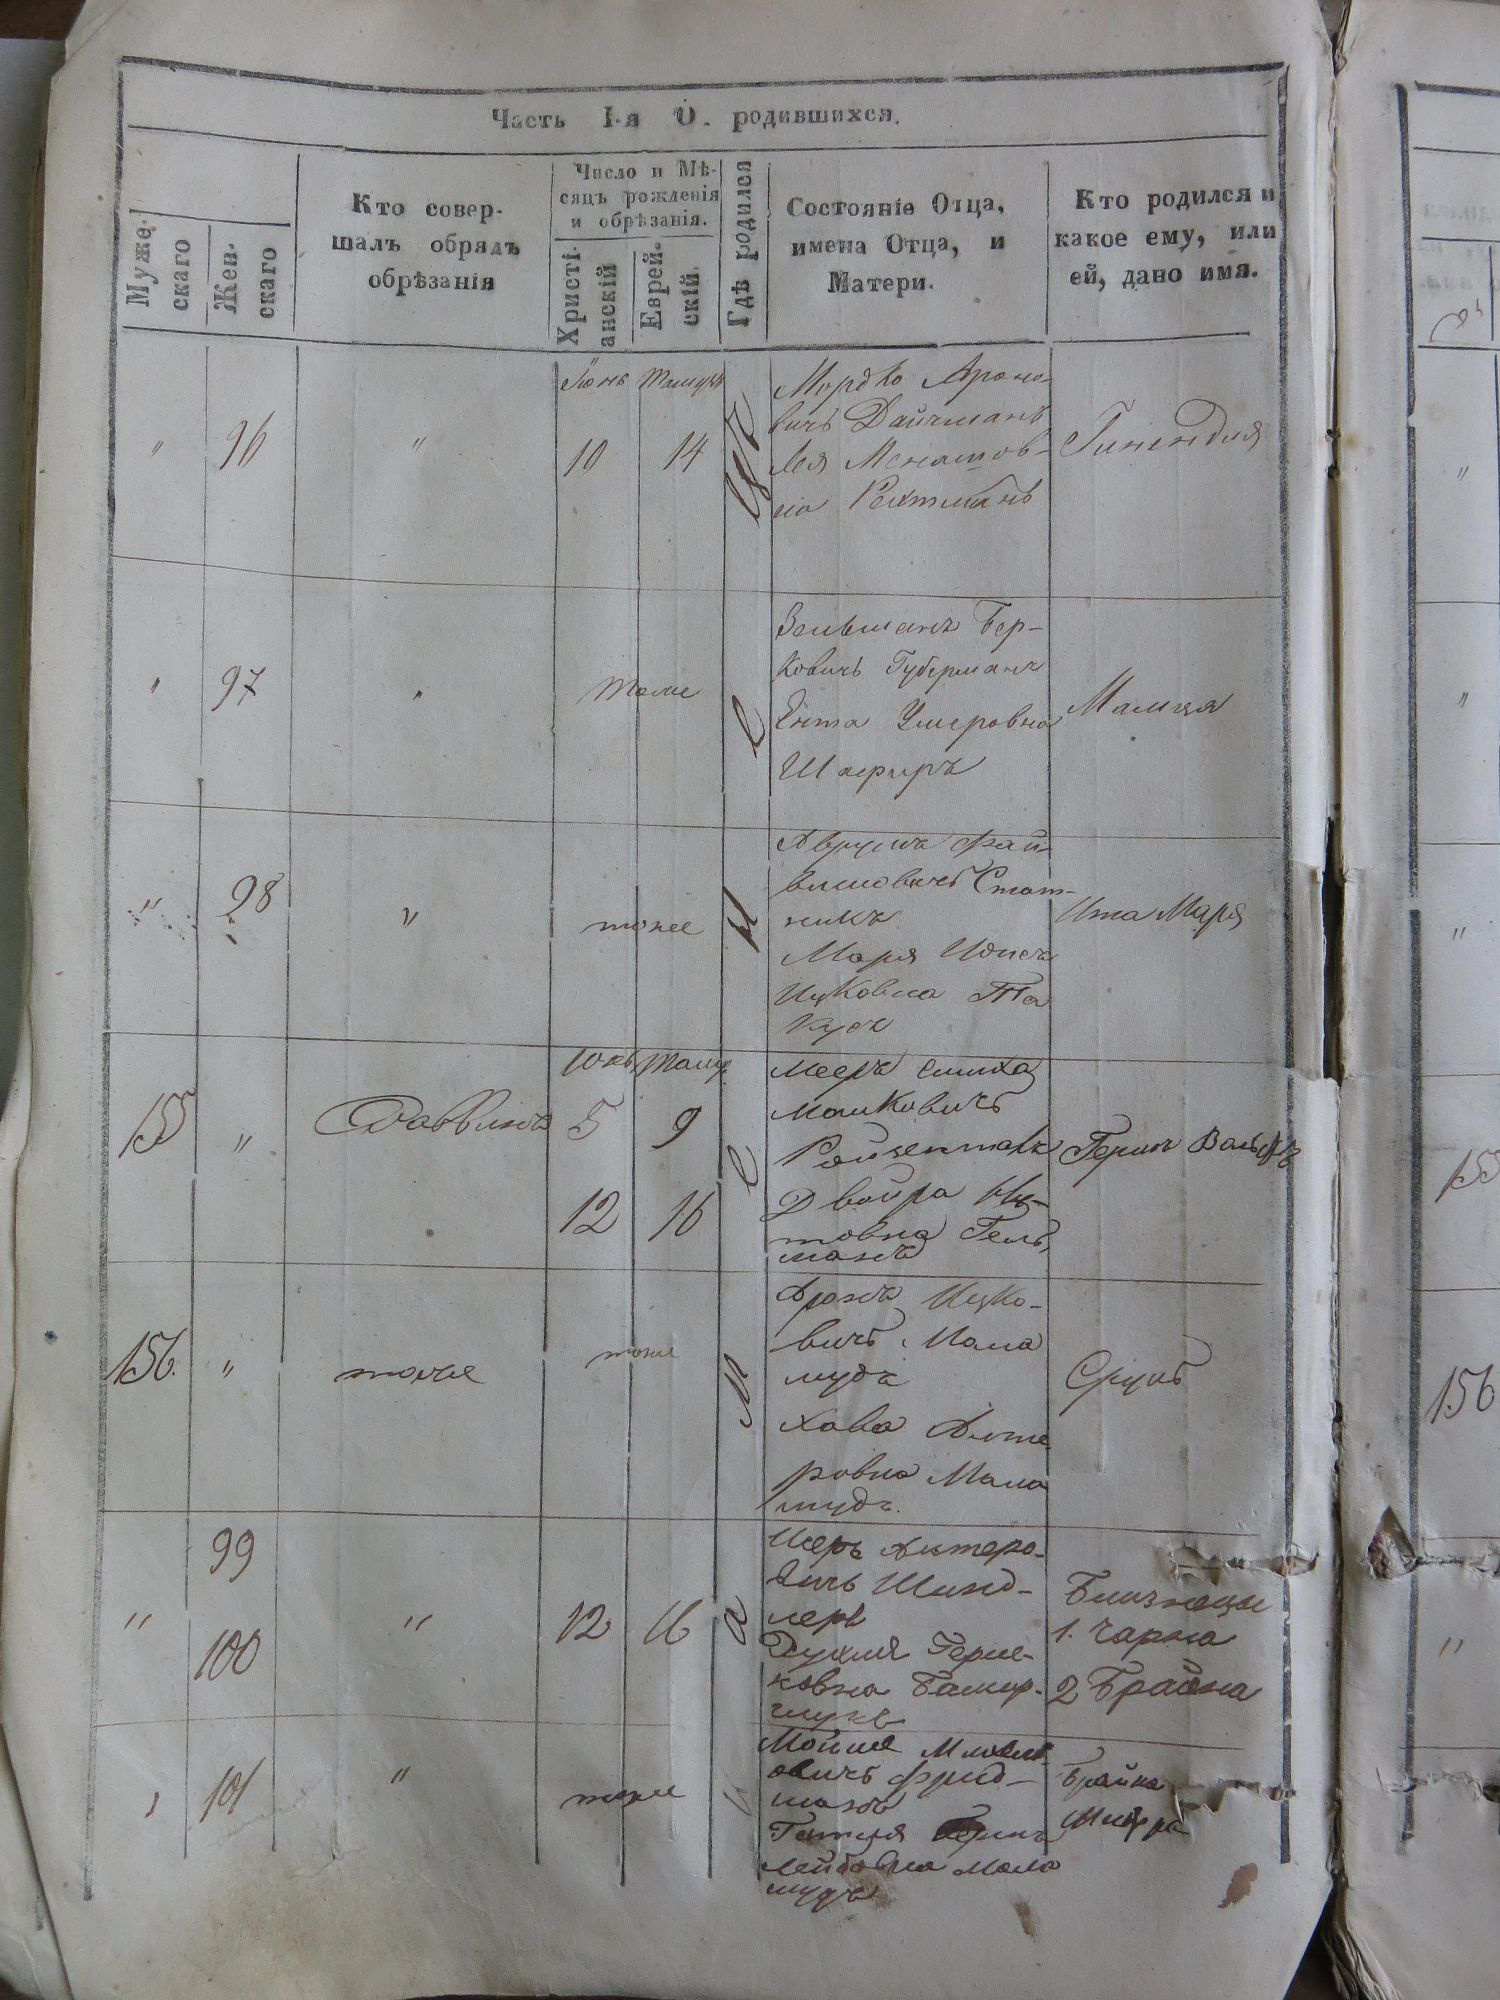 Часть I-я О. родившихся.
Муже-
скаго
Жен-
скаго
Кто совер-
шалъ обрядъ
обрѣзанія
Число и Мѣ-
сяцъ рожденія
и обрѣзанія.
Христі-
анскій
Еврей-
скій.
Гдѣ родился
Состояніе Отца,
имена Отца, и
Матери.
Кто родился и
какое ему, или
ей, дано имя.
" 96 " Іюнь 10 14
Мордко Ароно-
вичъ Дайчманъ
Лея Менашов-
на Рехтманъ
Гинендля
" 97 " тоже
Зельманъ Бер-
ковичъ Губерманъ
Ента Умеровна
Шафиръ
" 98 " тоже
Аврумъ Фай-
виловичъ Стат-
никъ
Маря
Ицковна
Ита Маря
155 " 5 9
12 16
Мееръ Симха
Машковичъ
Ройзенталъ
Двойра
товна Гель-
манъ
Гершъ Вольфъ
156. " тоже тоже
Аронъ Ицко-
вичъ Мала
мудъ
Хава Алте-
ровна Мала
мудъ.
Сруль
99
" 100 " 12 16
Шеръ Алтеро-
вичъ Шинд-
леръ
Рухля Герш-
ковна
Близнецы
1. Чарна
2 Брайна
101 " тоже
Мойше
овичъ Фрид-
манъ
Лейбовна Мала
мудъ
Брайна
155
156